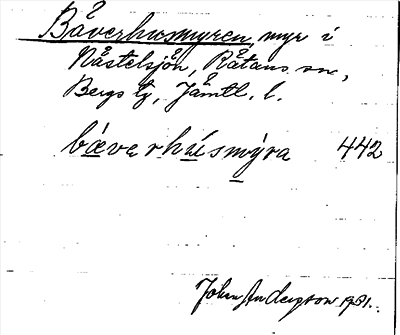 Båverhusmyren, myr i
Nästelsjön, Rätans sn,
Bergs tg, Jämtl. l.
bæverhúsmýra 442
John Anderson 1931.